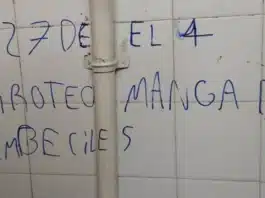 27 DE EL 4
ROTEO MANGA
MBECILES